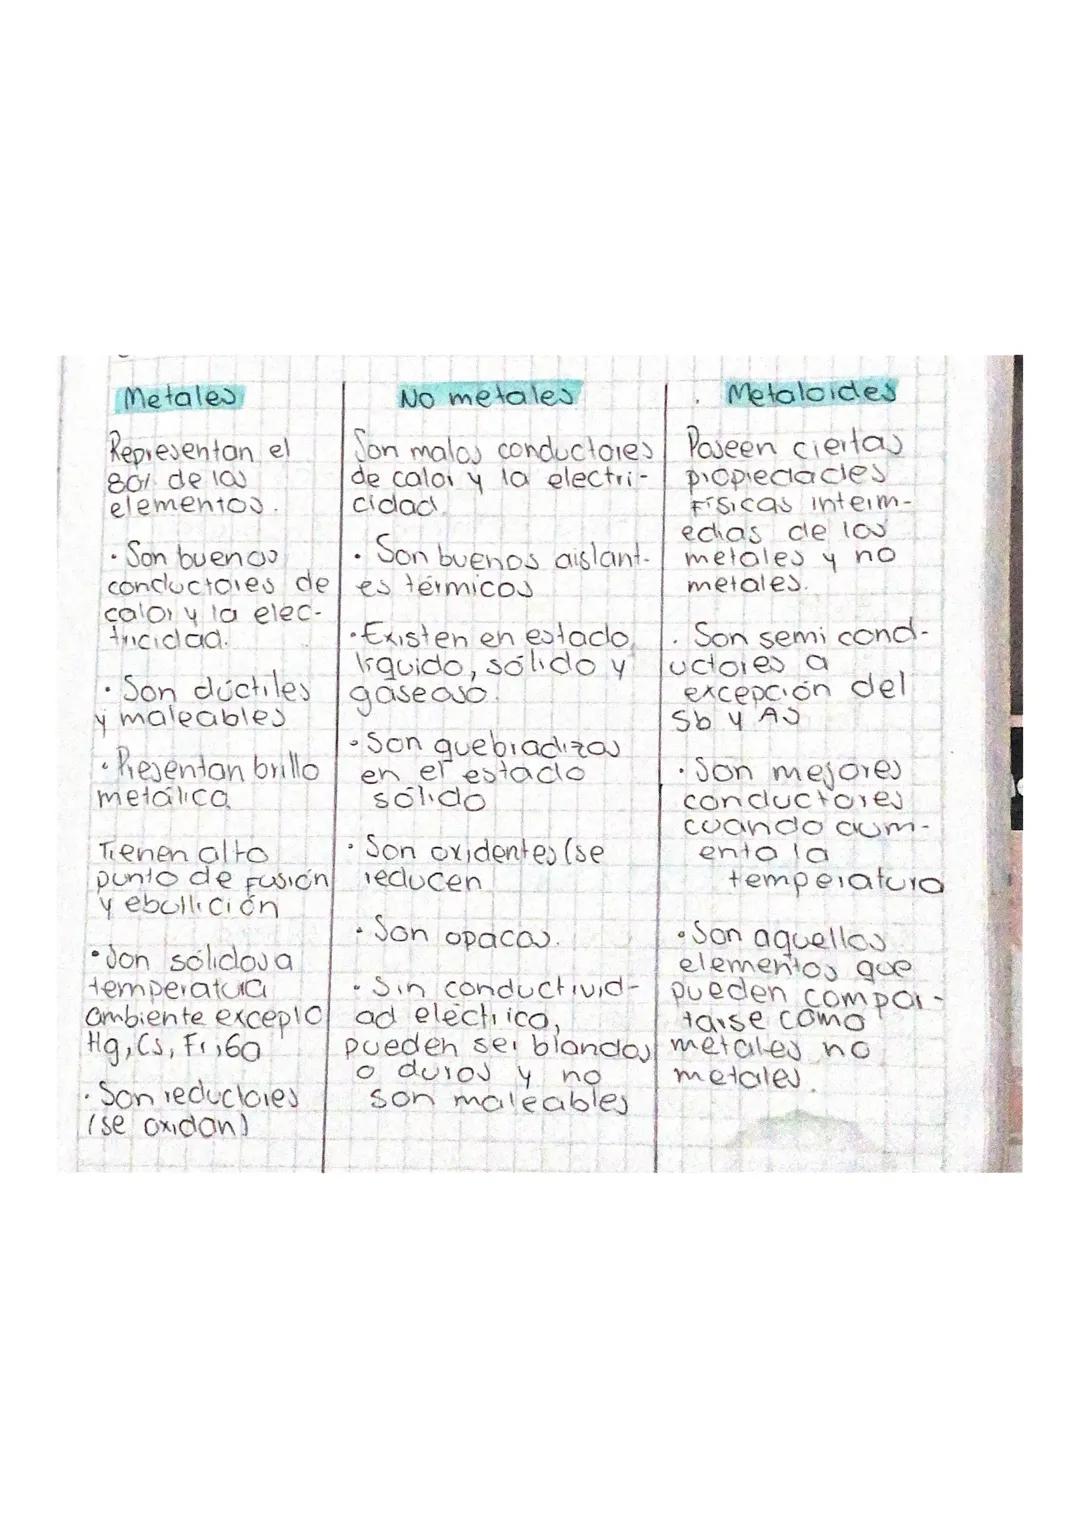 Metales
Representan el
80% de los
elementos.
· Son buenos
conductores de
calor y la elec-
tricidad.
· Son dúctiles
y maleables
· Presentan brillo
metálico
Tienen alto
punto de fusión
y ebullición
· Son sólidos a
temperatura
ambiente excepto
Hg, Cs, Fr, Ga
· Son reductores
(se oxidan)
No metales
Son malos conductores
de calor y la electri-
cidad.
· Son buenos aislant-
es térmicos
· Existen en estado
líquido, sólido y
gaseoso.
· Son quebradizos
en el estado
sólido
· Son oxidentes (se
reducen
· Son opacos.
· Sin conductivid-
ad eléctrica,
pueden ser blandos
o duros y no
son maleables
Metaloides
Poseen ciertas
propiedades
físicas interm-
edias de los
metales y no
metales.
· Son semi cond-
uctores a
excepción del
Sb y As
· Son mejores
conductores
cuando aum-
enta la
temperatura
· Son aquellos
elementos que
pueden compor-
tarse como
metales no
metales.